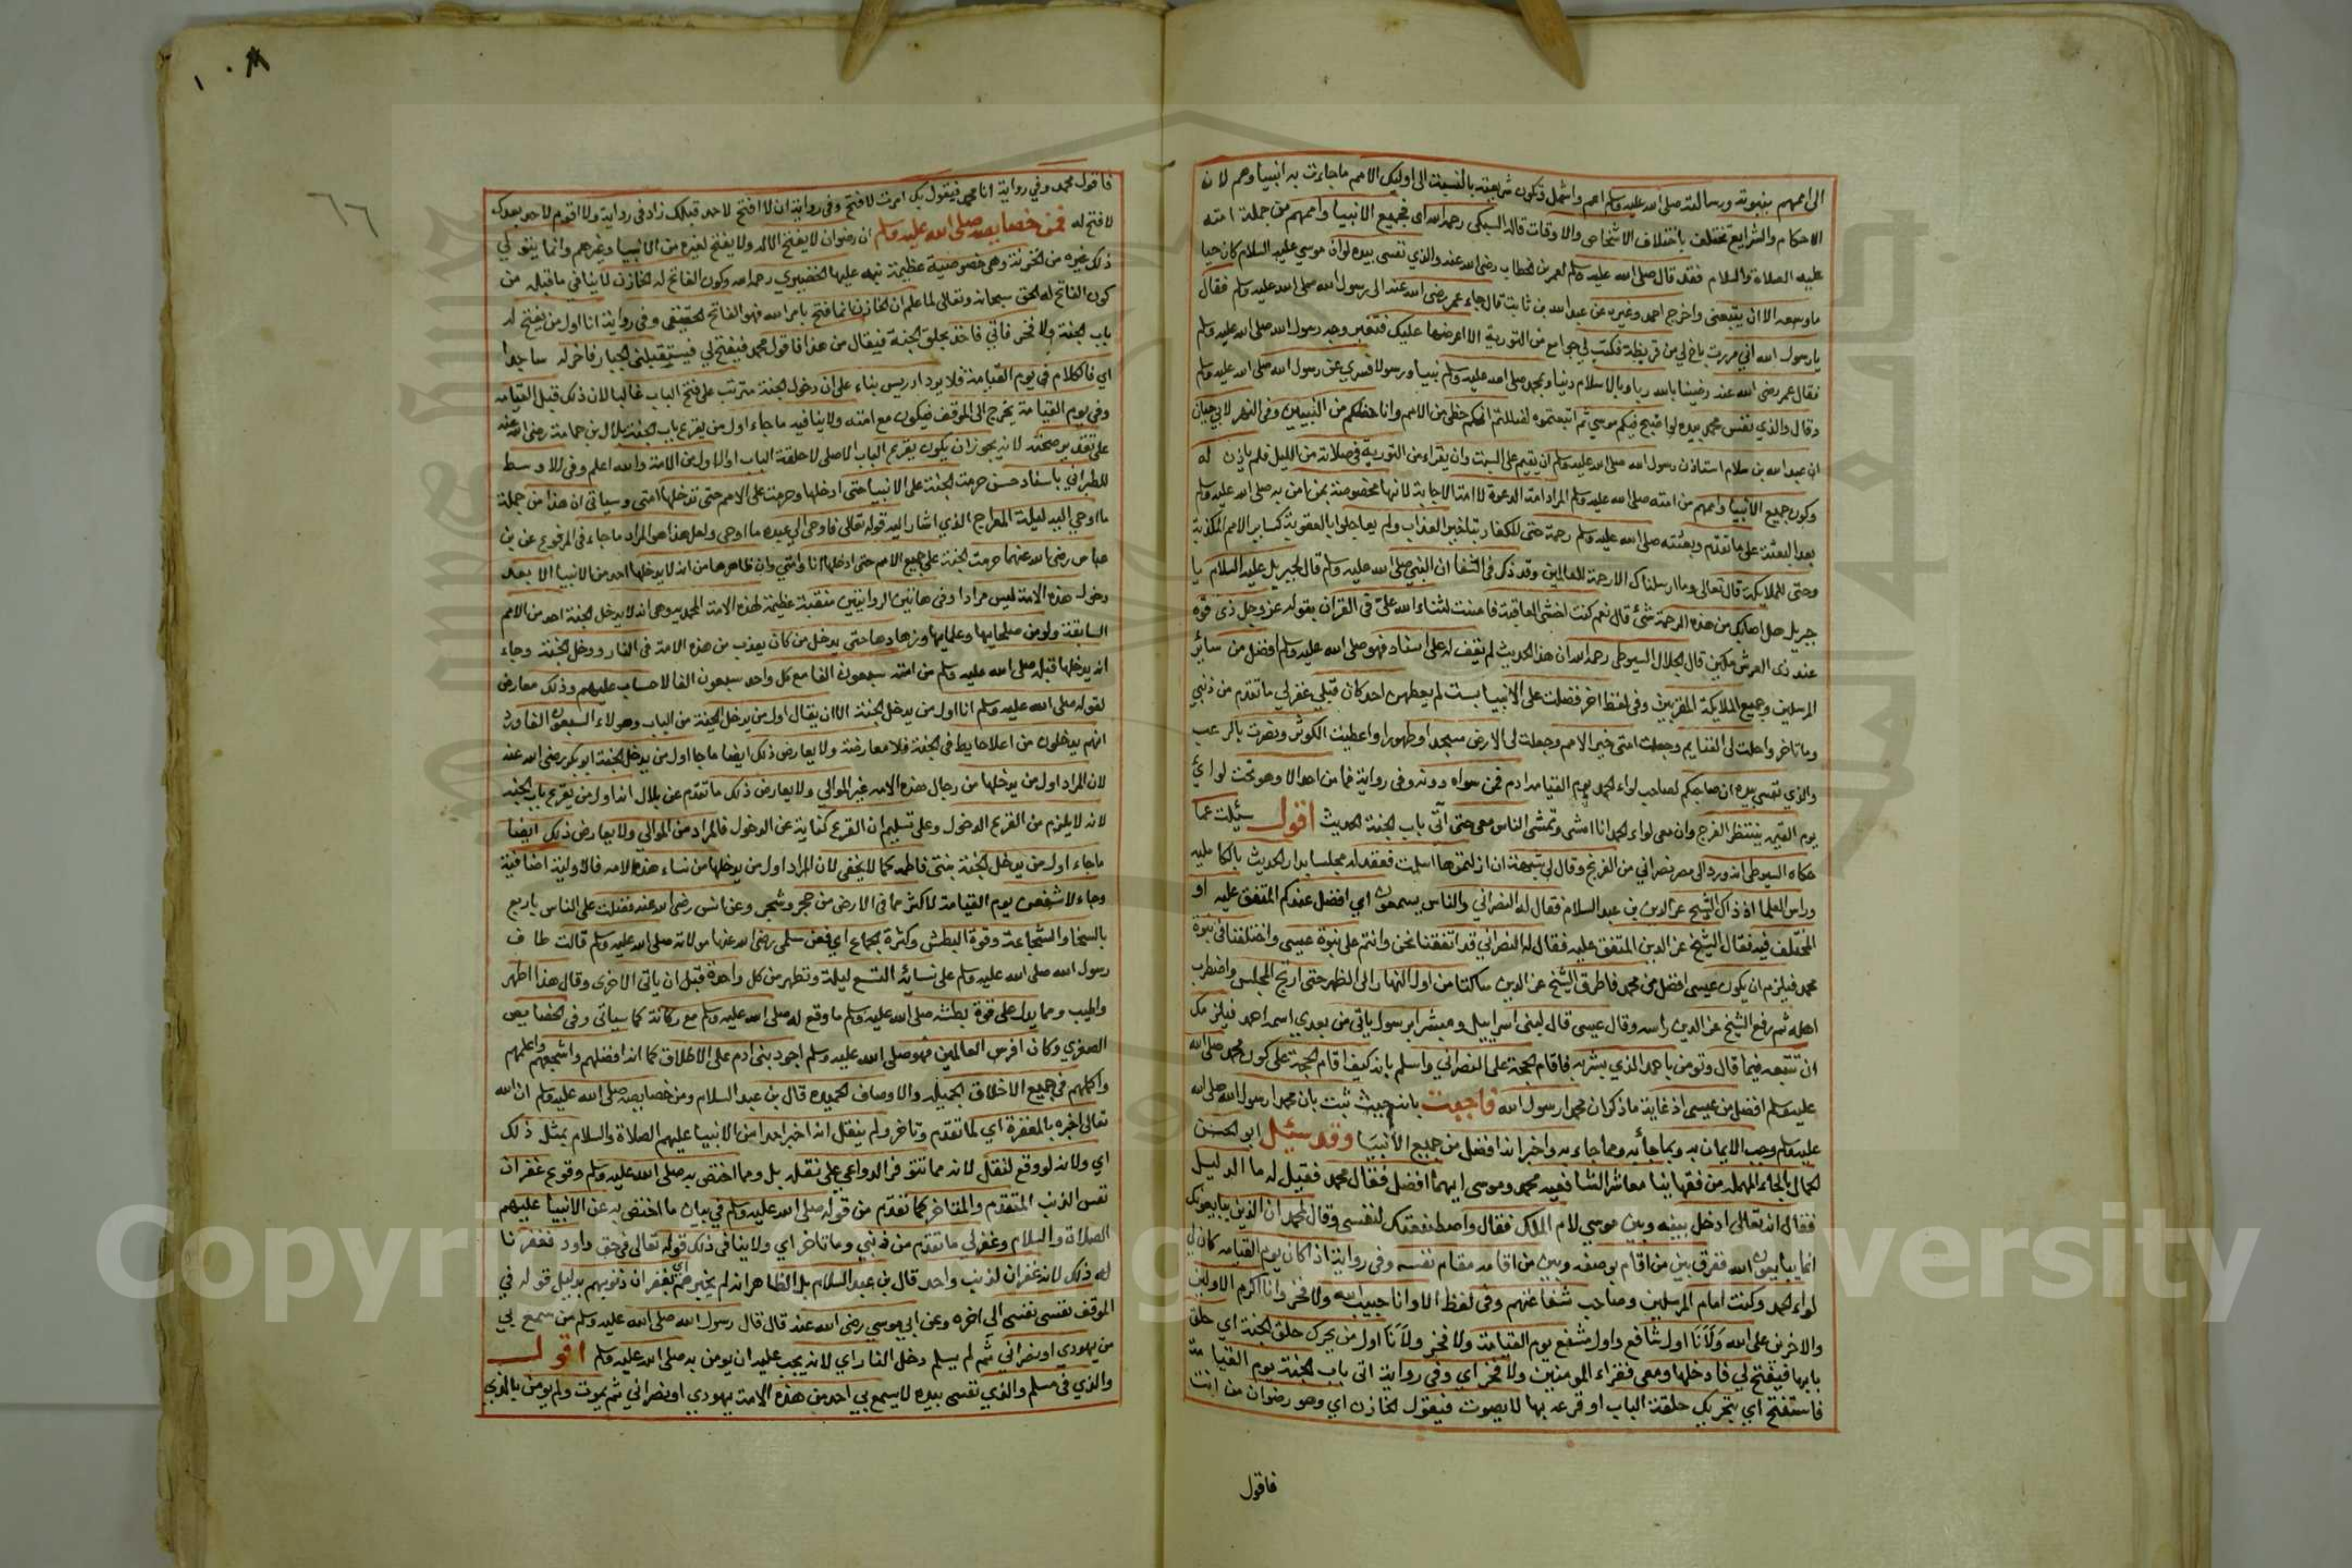 الى اممهم بنبوته ورسالته صلى الله عليه وسلم اعم واشمل وتكون شريعته بالنسبة الى اوليك الامم ما جاءت به انبياوهم لان
الاحكام والشرايع تختلف باختلاف الاشخاص والاوقات قاله السبكي رحمه الله اي فجميع الانبيا واممهم من جملة امته
عليه الصلاة والسلام فقد قال صلى الله عليه وسلم لعمر بن الخطاب رضى الله عنه والذي نفسى بيده لو ان موسي عليه السلام كان حيا
ما وسعه الا ان يتبعنى واخرج احمد وغيره عن عبد الله بن ثابت قال جاء عمر رضى الله عنه الى رسول الله صلى الله عليه وسلم فقال
يا رسول الله اني مررت باخ لي من قريظة فكتب لي جوامع من التورية الا اعرضها عليك فتغير وجه رسول الله صلى الله عليه وسلم
فقال عمر رضى الله عنه رضينا بالله ربا وبالاسلام دينا وبمحمد صلى الله عليه وسلم نبيا ورسولا فسري عن رسول الله صلى الله عليه وسلم
وقال والذي نفس محمد بيده لو اصبح فيكم موسي ثم اتبعتموه لضللتم انكم حظى من الامم وانا حظكم من النبيين وفى النهر لابي حيان
ان عبد الله بن سلام استاذن رسول الله صلى الله عليه وسلم ان يقيم على السبت وان يقراء من التورية في صلاته من الليل فلم ياذن له
وكون جميع الانبيا واممهم من امته صلى الله عليه وسلم المراد امة الدعوة لا امة الاجابة لانها مخصوصة بمن امن به صلى الله عليه وسلم
بعد البعثة على ما تقدم وبعثته صلى الله عليه وسلم رحمة حتى للكفار بتاخير العذاب ولم يعاجلوا بالعقوبة كساير الامم المكذبة
وحتى للملايكة قال تعالى وما ارسلناك الا رحمة للعالمين وقد ذكر فى الشفا ان النبي صلى الله عليه وسلم قال لجبريل عليه السلام يا
جبريل هل اصابك من هذه الرحمة شئ قال نعم كنت اخشى العاقبة فامنت لثناء الله علي فى القران بقوله عز وجل ذى قوة
عند ذى العرش مكين قال الجلال السيوطى رحمه الله ان هذا الحديث لم نقف له على اسناد فهو صلى الله عليه وسلم افضل من سائر
المرسلين وجميع الملايكة المقربين وفى لفظ اخر فضلت على الانبيا بست لم يعطهن احد كان قبلي غفر لي ما تقدم من ذنبي
وما تاخر واحلت لى الغنايم وجعلت امتى خير الامم وجعلت لى الارض مسجدا وطهورا واعطيت الكوثر ونصرت بالرعب
والذي نفسى بيده ان صاحبكم لصاحب لواء الحمد يوم القيامة ادم فمن سواه دونه وفى رواية فما من احد الا وهو تحت لوائ
يوم القيمة ينتظر الفرج وان معى لواء الحمد انا امشى وتمشى الناس معى حتى آتى باب الجنة الحديث اقول سئلت عما
حكاه السيوطى انه ورد الى مصر نصراني من الفرنج وقال لي شبهة ان ازلتموها اسلمت فعقد له مجلسا بدار الحديث بالكاملية
وراس العلما اذ ذاك الشيخ عز الدين بن عبد السلام فقال له النصراني والناس يسمعون اي افضل عندكم المتفق عليه او
المختلف فيه فقال الشيخ عز الدين المتفق عليه فقال له النصراني قد اتفقنا نحن وانتم على نبوة عيسى واختلفنا فى نبوة
محمد فيلزم ان يكون عيسى افضل من محمد فاطرق الشيخ عز الدين ساكتا من اول النهار الى الظهر حتى ارتج المجلس واضطرب
اهله ثم رفع الشيخ عز الدين راسه وقال عيسى قال لبنى اسراييل ومبشرا برسول ياتي من بعدي اسمه احمد فيلزمك
ان تتبعه فيما قال وتومن باحمد الذي بشر به فاقام الحجة على النصراني واسلم بانه كيف اقام الحجة على كون محمد صلى الله
عليه وسلم افضل من عيسى اذ غاية ما ذكر ان محمدا رسول الله فاجبت بانه حيث ثبت بان محمدا رسول الله صلى الله
عليه وسلم وجب الايمان به وبما جاء به ومما جاء به واخبر انه افضل من جميع الأنبيا وقد سئل ابو الحسن
الحمال بالحاء المهمله من فقهاينا معاشر الشافعية محمد وموسى ايهما افضل فقال محمد فقيل له ما الدليل
فقال انه تعالى ادخل بينه وبين موسي لام الملك فقال واصطنعتك لنفسى وقال لمحمد ان الذين يبايعونك
انما يبايعون الله ففرق بين من اقام بوصفه وبين من اقامه مقام نفسه وفى رواية اذا كان يوم القيامة كان لي
لواء الحمد وكنت امام المرسلين وصاحب شفاعتهم وفى لفظ الا وانا حبيب الله ولا فخر وانا اكرم الاولين
والاخرين على الله ولا فخر وانا اول شافع واول مشفع يوم القيامة ولا فخر وانا اول من يحرك حلق الجنة اي حلق
بابها فيفتح لي فادخلها ومعى فقراء المومنين ولا فخر اي وفى رواية اتى باب الجنة يوم القيامة
فاستفتح اي بتحريك حلقة الباب او قرعه بها لا بصوت فيقول الخازن اي وهو رضوان من انت
فاقول
فاقول محمد وفي رواية انا محمد فيقول بك امرت لا افتح وفى رواية ان لا افتح لاحد قبلك زاد فى رواية ولا اقوم لاحد بعدك
لافتح له فمن خصايصه صلى الله عليه وسلم ان رضوان لا يفتح الا له ولا يفتح لغيره من الانبيا وغيرهم وانما يتولي
ذلك غيره من الخزنة وهى خصوصية عظيمة نبه عليها الخضيري رحمه الله وكون الفاتح له الخازن لا ينافي ما قبله من
كون الفاتح له الحق سبحانه وتعالى لما علم ان الخازن انما فتح بامر الله فهو الفاتح الحقيقى وفى رواية انا اول من يفتح له
باب الجنة ولا فخر فاتي فاخذ بحلق الجنة فيقال من هذا فاقول محمد فيفتح لي فيستقبلنى الجبار فاخر له ساجدا
اي فالكلام في يوم القيامة فلا يرد ادريس بناء على ان دخول الجنة مترتب على فتح الباب غالبا لان ذلك قبل القيامة
وفى يوم القيامة يخرج الى الموقف فيكون مع امته ولا ينافيه ما جاء اول من يقرع باب الجنة بلال بن حمامة رضى الله عنه
على تقدير صحته لانه يجوز ان يكون يقرع الباب الاصلى لا حلقة الباب او الاول من الامة والله اعلم وفى الاوسط
للطبراني باسناد حسن حرمت الجنة على الانبيا حتى ادخلها وحرمت على الامم حتى تدخلها امتى وسياتى ان هذا من جملة
ما اوحي اليه ليلة المعراج الذي اشار اليه قوله تعالى فاوحى الي عبده ما اوحى ولعل هذا هو المراد ما جاء فى المرفوع عن بن
عباس رضى الله عنهما حرمت الجنة على جميع الامم حتى ادخلها انا وامتي وان ظاهرها من انه لا يدخلها احد من الانبيا الا بعد
دخول هذه الامة ليس مرادا وفى هاتين الروايتين منقبة عظيمة لهذه الامة المحمدية وهى انه لا يدخل الجنة احد من الامم
السابقة ولو من صلحايها وعلمايها وزهادها حتى يدخل من كان يعذب من هذه الامة فى النار ودخل الجنة وجاء
انه يدخلها قبله صلى الله عليه وسلم من امته سبعون الفا مع كل واحد سبعون الفا لا حساب عليهم وذلك معارض
لقوله صلى الله عليه وسلم انا اول من يدخل الجنة الا ان يقال اول من يدخل الجنة من الباب وهولاء السبعون الفا ورد
انهم يدخلون من اعلا حايط فى الجنة فلا معارضة ولا يعارض ذلك ايضا ما جا اول من يدخل الجنة ابو بكر رضى الله عنه
لان المراد اول من يدخلها من رجال هذه الامة غير الموالى ولا يعارض ذلك ما تقدم عن بلال انه اول من يقرع باب الجنة
لانه لا يلزم من القرع الدخول وعلى تسليم ان القرع كناية عن الدخول فالمراد من الموالى ولا يعارض ذلك ايضا
ما جاء اول من يدخل الجنة بنتى فاطمة كما لا يخفى لان المراد اول من يدخلها من نساء هذه الامة فالاولية اضافية
وجاء لاشفعن يوم القيامة لاكثر مما فى الارض من حجر وشجر وعن انس رضى الله عنه فضلت على الناس باربع
بالسخا والشجاعة وقوة البطش وكثرة الجماع اي فعن سلمى رضى الله عنها مولاته صلى الله عليه وسلم قالت طاف
رسول الله صلى الله عليه وسلم على نسائه التسع ليلة وتطهر من كل واحدة قبل ان ياتى الاخرى وقال هذا اطهر
واطيب ومما يدل على قوة بطشه صلى الله عليه وسلم ما وقع له صلى الله عليه وسلم مع ركانة كما سياتى وفى الخصايص
الصغري وكان افرس العالمين فهو صلى الله عليه وسلم اجود بنى ادم على الاطلاق كما انه افضلهم واشجعهم واعلمهم
واكملهم في جميع الاخلاق الجميلة والاوصاف الحميدة قال بن عبد السلام ومن خصايصه صلى الله عليه وسلم ان الله
تعالى اخبره بالمغفرة اي لما تقدم وتاخر ولم ينقل انه اخبر احدا من الانبيا عليهم الصلاة والسلام بمثل ذلك
اي ولانه لو وقع لنقل لانه مما تتوفر الدواعي على نقله بل ومما اختص به صلى الله عليه وسلم وقوع غفران
نفس الذنب المتقدم والمتاخر كما تقدم من قوله صلى الله عليه وسلم في بيان ما اختص به عن الانبيا عليهم
الصلاة والسلام وغفر لي ما تقدم من ذنبي وما تاخر اي ولا ينافى ذلك قوله تعالى فى حق داود فغفرنا
له ذلك لانه غفران لذنب واحد قال بن عبد السلام بل الظاهر انه لم يخبرهم اي بغفران ذنوبهم بدليل قوله في
الموقف نفسى نفسى الى اخره وعن ابي موسي رضى الله عنه قال قال رسول الله صلى الله عليه وسلم من سمع بي
من يهودي او نصراني ثم لم يسلم دخل النار اي لانه يجب عليه ان يومن به صلى الله عليه وسلم اقول
والذي فى مسلم والذي نفسى بيده لا يسمع بي احد من هذه الامة يهودي او نصراني ثم يموت ولم يومن بالذي
Copyright © King Saud University